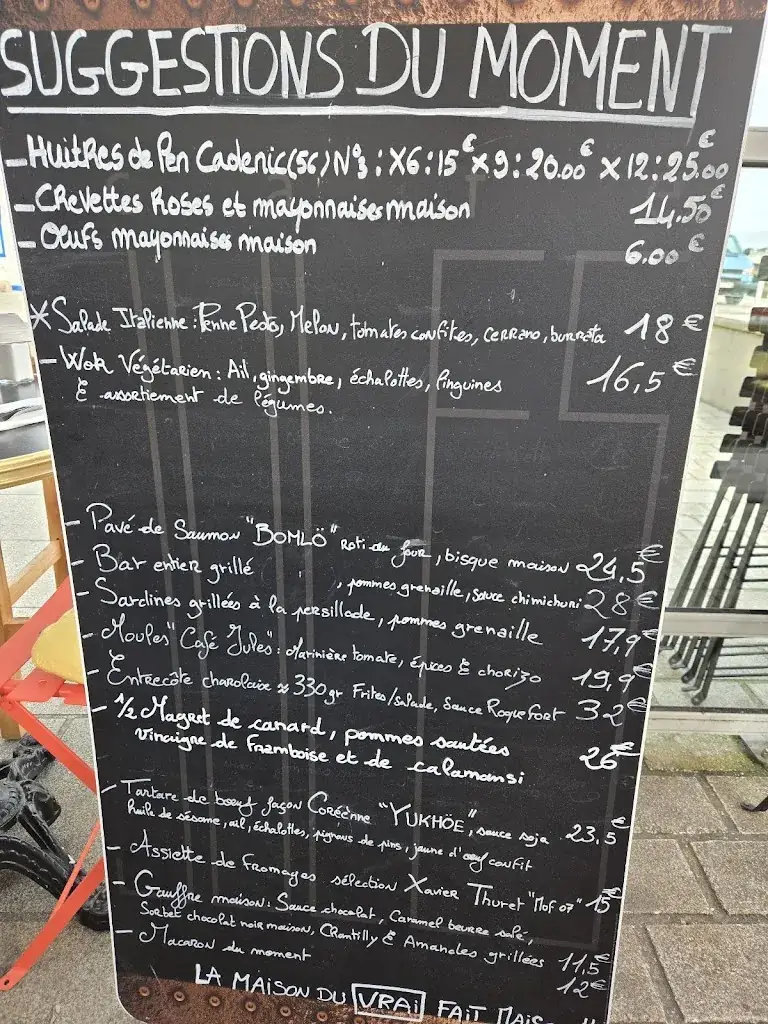 SUGGESTIONS DU MOMENT
- Huîtres de Pen Cadenic (56) N°3 : X6 : 15€ X9 : 20.00€ X12 : 25.00€
- Crevettes Roses et mayonnaises maison 14.50€
- Oeufs mayonnaises maison 6.00€
* Salade Italienne : Penne Pesto, Melon, tomates confites, cerrano, burrata 18€
- Wok Végétarien : Ail, gingembre, échalottes, linguines 16,5€
& assortiment de légumes.
- Pavé de Saumon "BOMLÖ" Roti au four, bisque maison 24,5€
- Bar entier grillé , pommes grenaille, sauce chimichuri 28€
- Sardines grillées à la persillade, pommes grenaille 17,9€
- Moules "Café Jules" : Marinière tomate, épices & chorizo 19,9€
- Entrecôte charolaise ≈ 330gr Frites/salade, Sauce Roquefort 32€
- 1/2 Magret de canard, pommes sautées 26€
vinaigre de Framboise et de calamansi
- Tartare de boeuf façon Coréenne "YUKHOE", sauce soja 23,5€
huile de sésame, ail, échalottes, pignons de pins, jaune d'oeuf confit
- Assiette de fromages sélection Xavier Thuret "Mof 07" 15€
- Gauffre maison : Sauce chocolat, Caramel beurre salé,
Sorbet chocolat noir maison, Chantilly & Amandes grillées 11,5€
- Macaron du moment 12€
LA MAISON DU VRAI FAIT MAIS